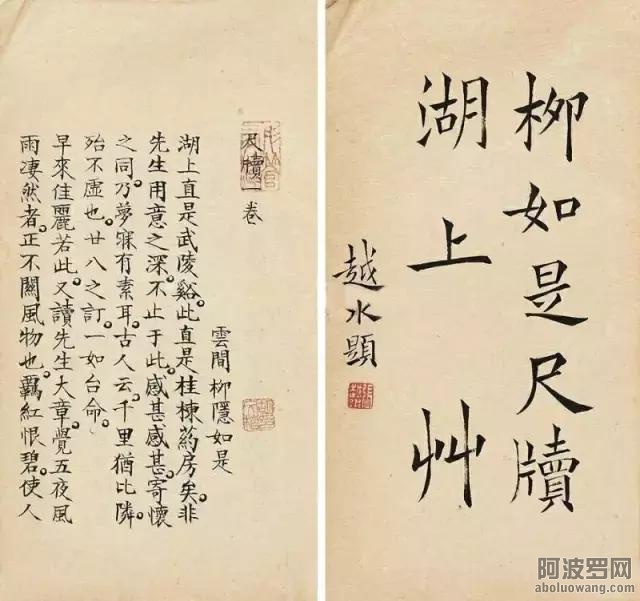 柳如是尺牘
湖上艸
越水題
尺牘一卷
雲間柳隱如是
湖上直是武陵谿。此直是桂棟葯房矣。非
先生用意之深。不止于此。感甚感甚。寄懷
之同。乃夢寐有素耳。古人云。千里猶比隣。
殆不虛也。廿八之訂。一如台命。
早來佳麗若此。又讀先生大章。覺五夜風
雨凄然者。正不關風物也。羈紅恨碧。使人
阿波罗网
aboluowang.com